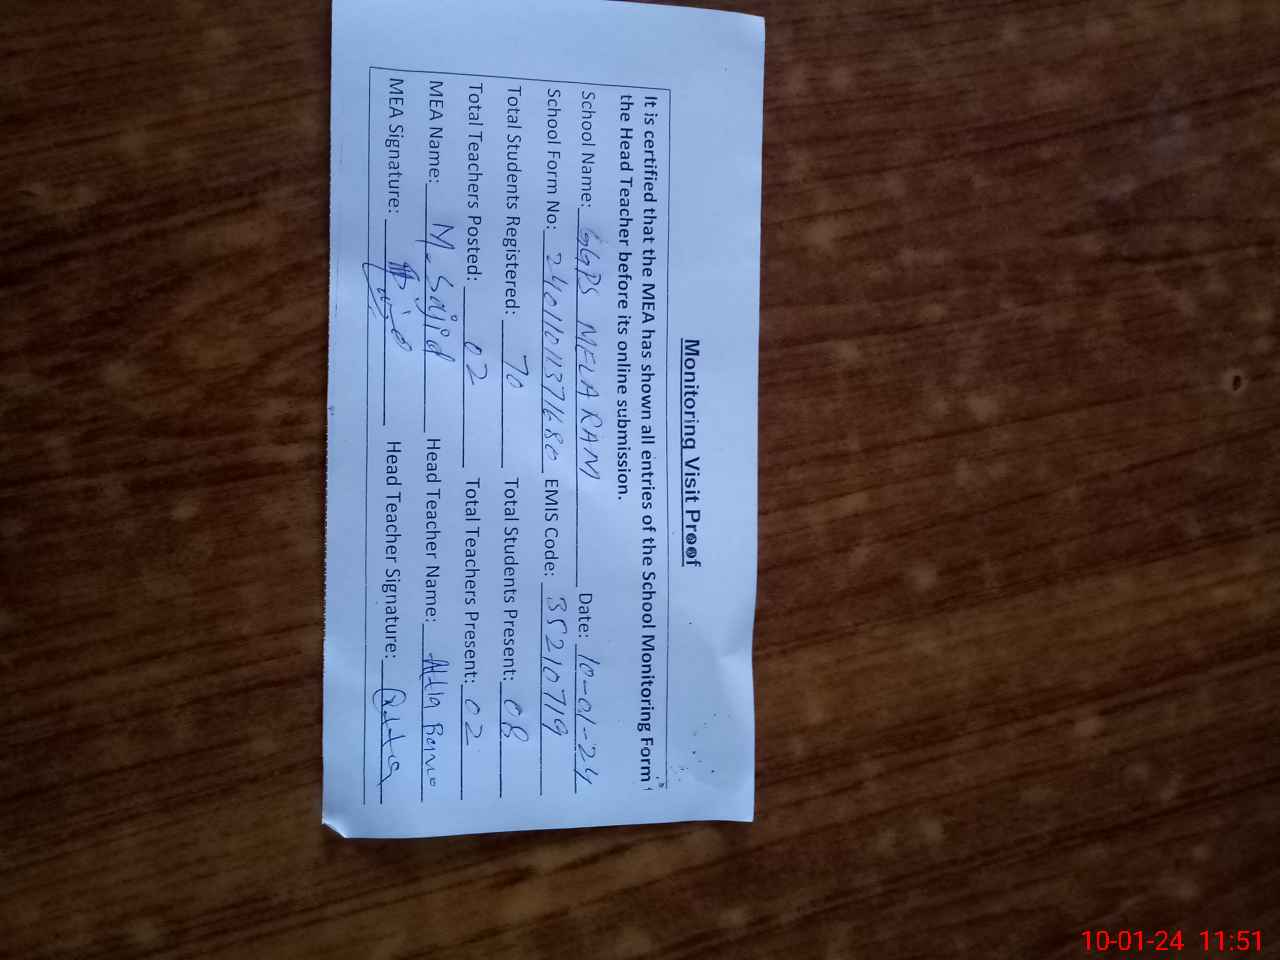 Monitoring Visit Proof
It is certified that the MEA has shown all entries of the School Monitoring Form
the Head Teacher before its online submission.
School Name: GGPS MELA RAM Date: 10-01-24
School Form No: EMIS Code: 35210719
Total Students Registered: 70 Total Students Present: 08
Total Teachers Posted: 02 Total Teachers Present: 02
MEA Name: M. Sajid Head Teacher Name:
MEA Signature: Head Teacher Signature:
10-01-24 11:51